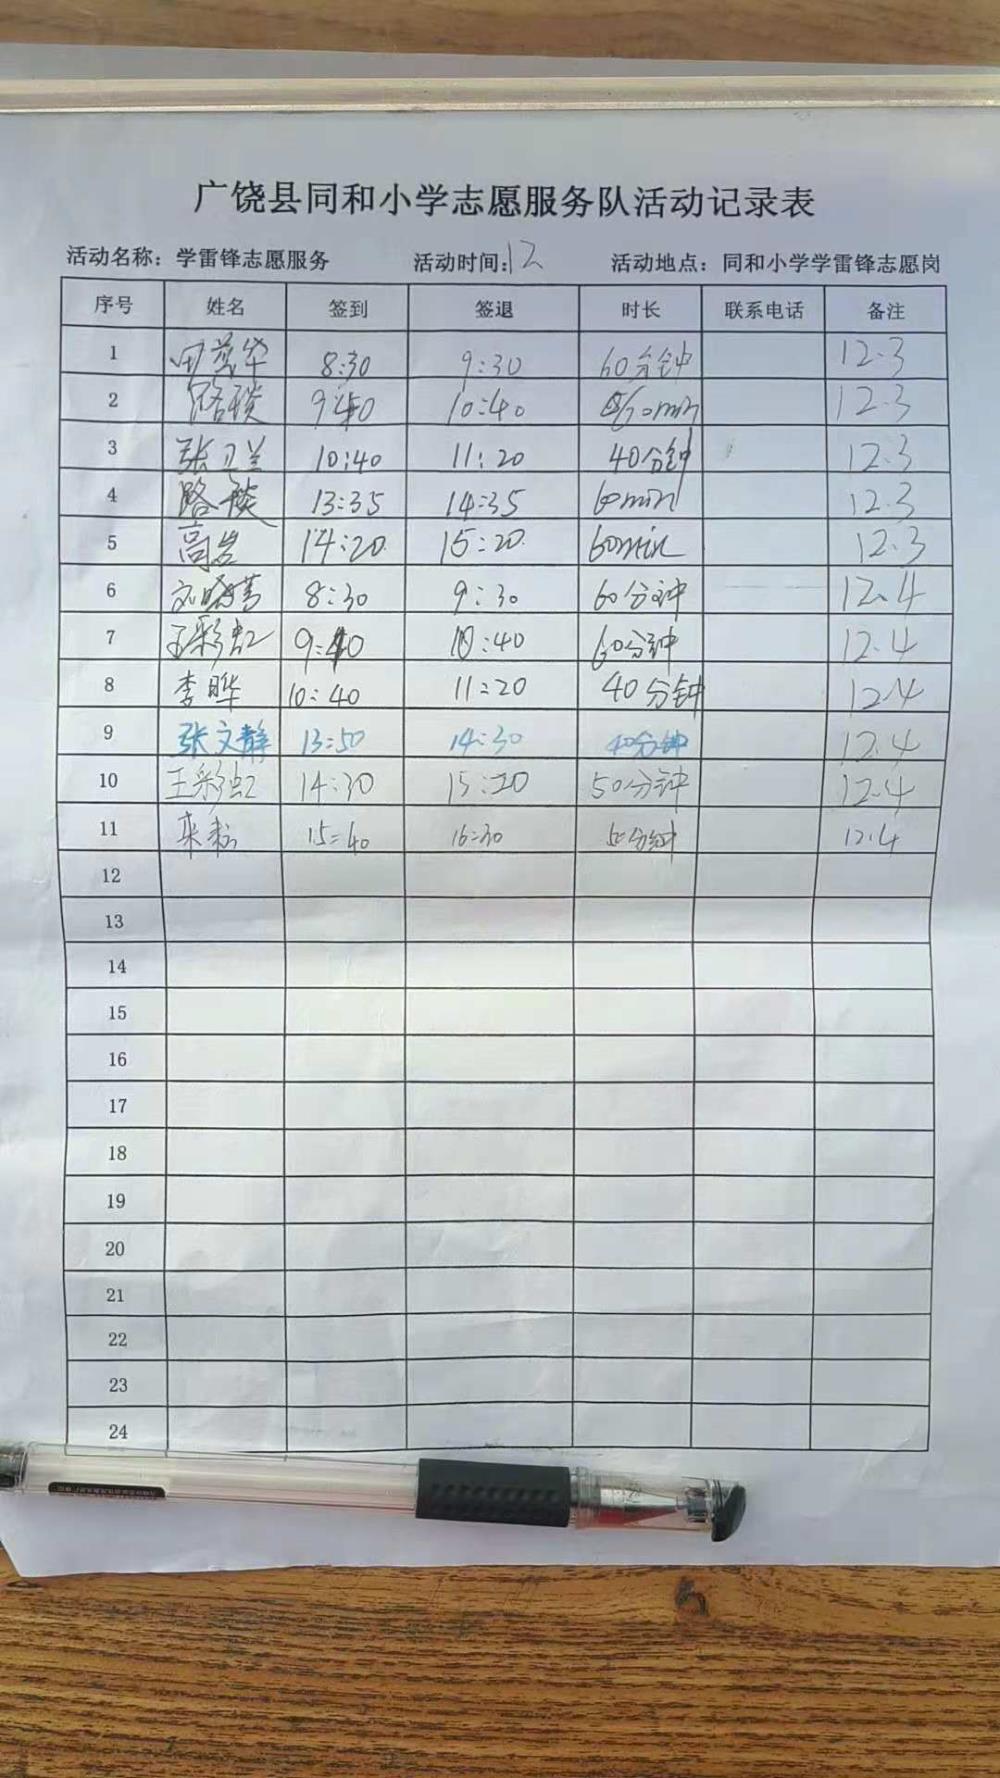 广饶县同和小学志愿服务队活动记录表
活动名称：学雷锋志愿服务 活动时间：12 活动地点：同和小学学雷锋志愿岗
序号 姓名 签到 签退 时长 联系电话 备注
1 8:30 9:30 60分钟 12.3
2 9:40 10:40 60min 12.3
3 张卫兰 10:40 11:20 40分钟 12.3
4 13:35 14:35 60min 12.3
5 高岩 14:20 15:20 60min 12.3
6 8:30 9:30 60分钟 12.4
7 王彩虹 9:40 10:40 60分钟 12.4
8 李晔 10:40 11:20 40分钟 12.4
9 张文静 13:50 14:30 40分钟 12.4
10 王彩虹 14:30 15:20 50分钟 12.4
11 15:40 16:30 50分钟 12.4
12
13
14
15
16
17
18
19
20
21
22
23
24